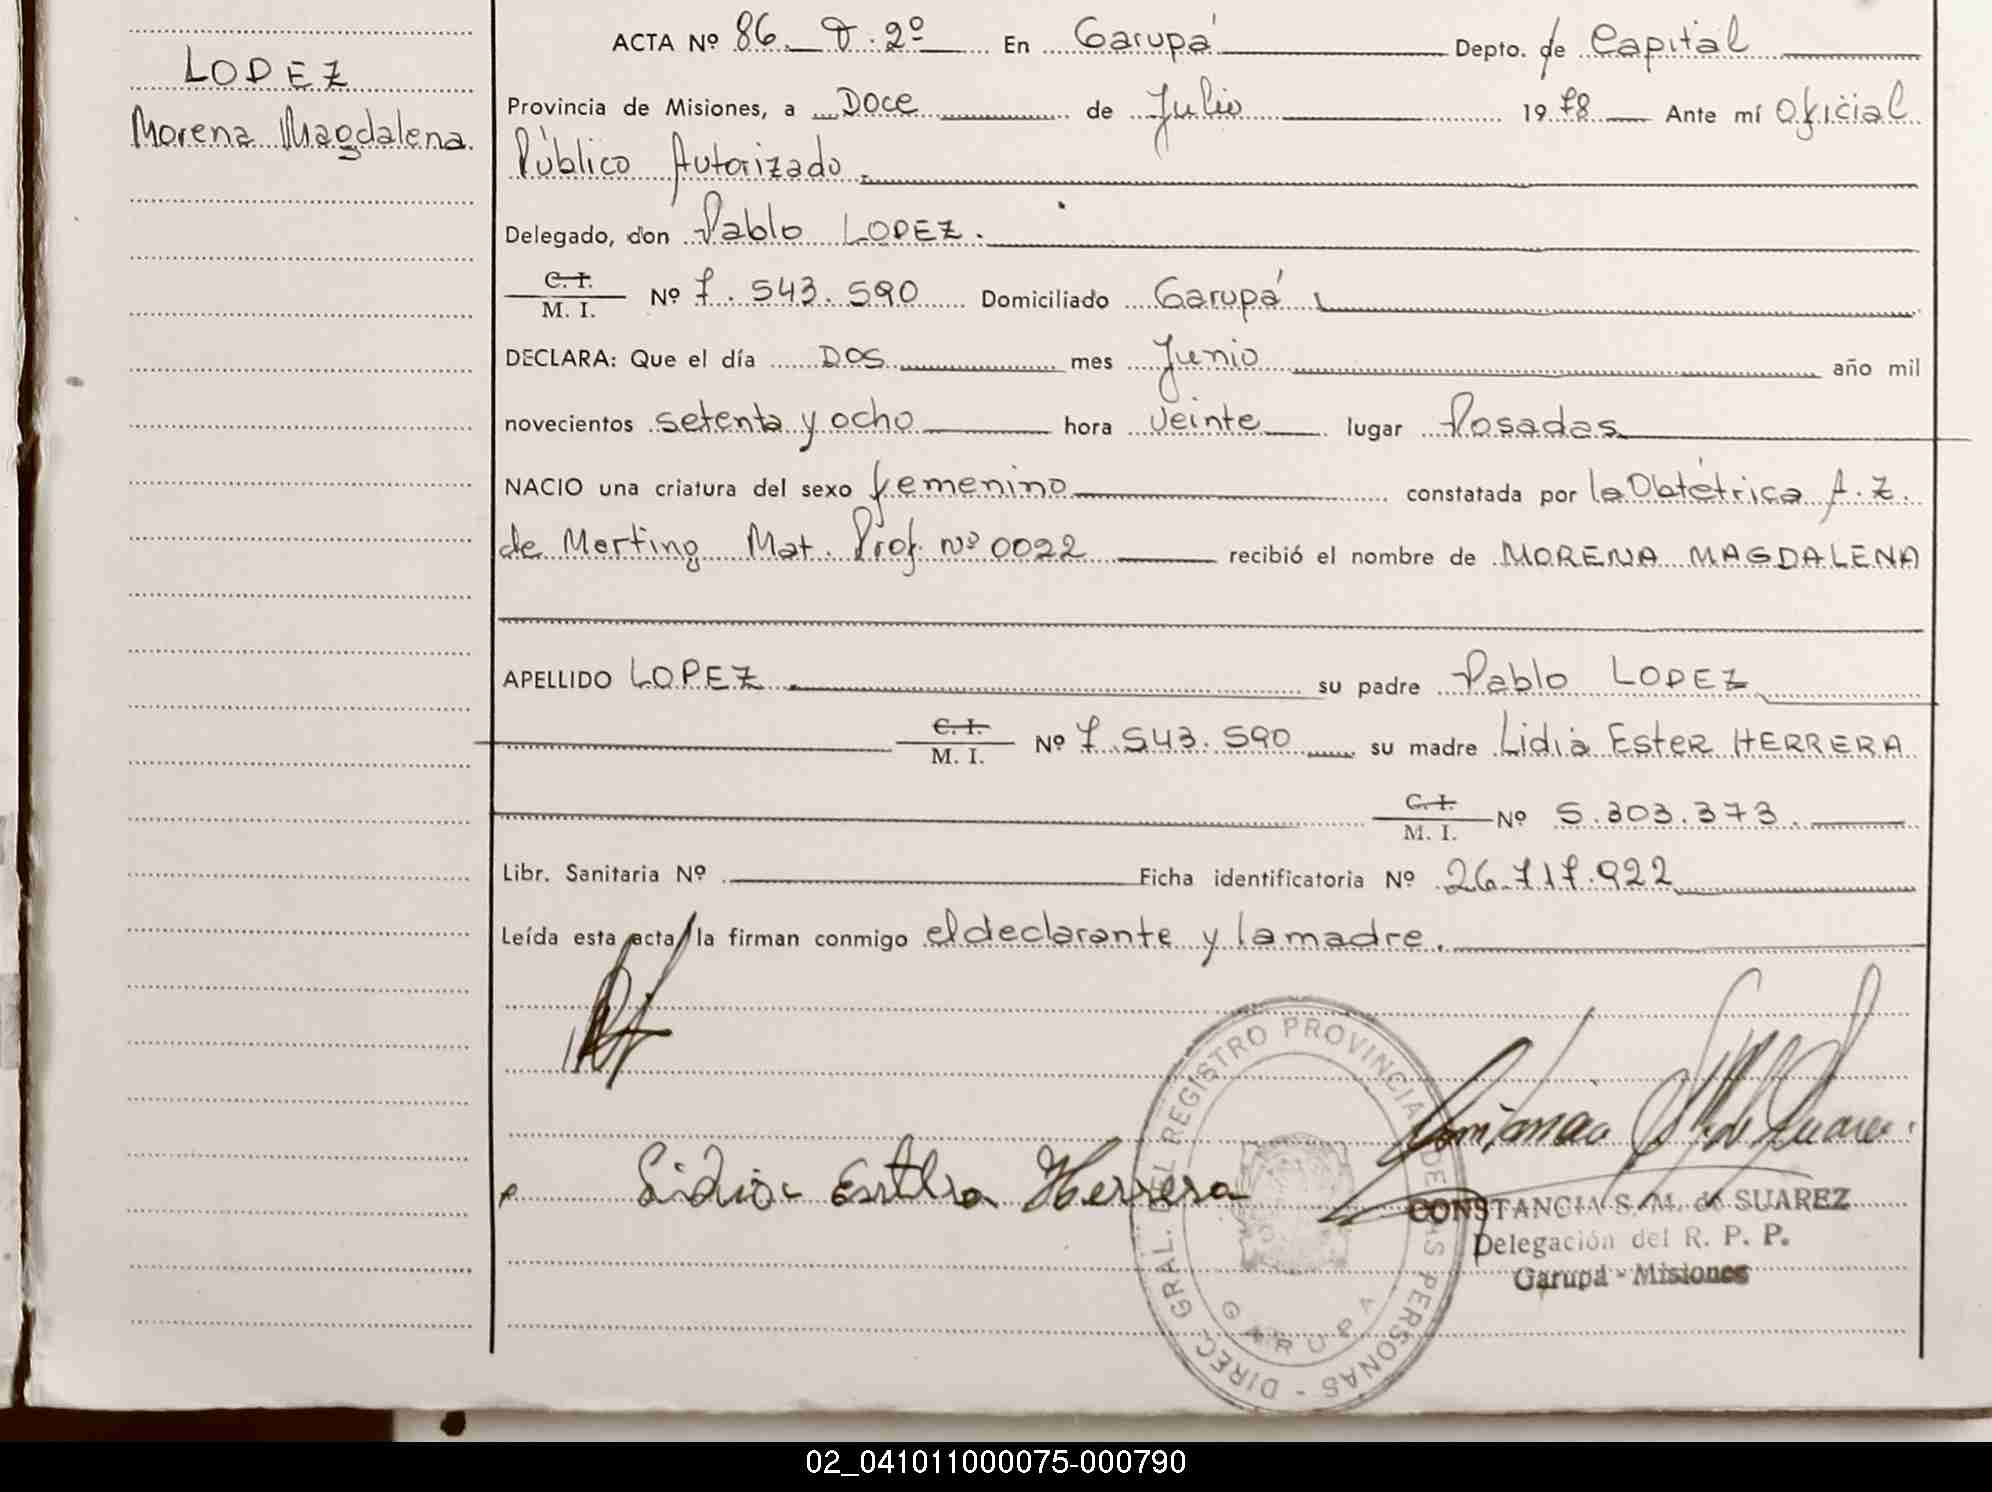 LOPEZ
Morena Magdalena.
ACTA Nº 86. T. 2º En Garupá Depto. de Capital
Provincia de Misiones, a Doce de Julio 1978 Ante mí Oficial
Público Autorizado.
Delegado, don Pablo LOPEZ.
C. I.
M. I. Nº 7.543.590 Domiciliado Garupá
DECLARA: Que el día DOS mes Junio año mil
novecientos setenta y ocho hora veinte lugar Posadas
NACIO una criatura del sexo femenino constatada por la Obtétrica A. Z.
de Merting Mat. Prof. Nº 0022 recibió el nombre de MORENA MAGDALENA
APELLIDO LOPEZ su padre Pablo LOPEZ
C. I.
M. I. Nº 7.543.590 su madre Lidia Ester HERRERA
C. I.
M. I. Nº 5.303.373.
Libr. Sanitaria Nº Ficha identificatoria Nº 26.717.922
Leída esta acta la firman conmigo el declarante y la madre.
Lidia Esthra Herrera
Constancia S. M. de Suarez
DIREC. GRAL. DEL REGISTRO PROVINCIAL DE LAS PERSONAS -
GARUPA
CONSTANCIA S. M. de SUAREZ
Delegación del R. P. P.
Garupá - Misiones
02_041011000075-000790